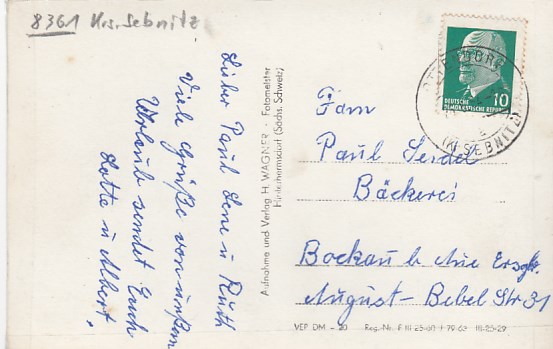 8361 Krs. Sebnitz
Lieber Paul Lene u Ruth
Viele Grüße von unßem
Urlaub sendet Euch
Lotte u Albert.
Aufnahme und Verlag H. WAGNER · Fotomeister
Hinterhermsdorf (Sächs. Schweiz)
DEUTSCHE
DEMOKRATISCHE REPUBLIK
10
SEBNITZ
Fam
Paul Seidel
Bäckerei
Bockau b Aue Erzgb.
August-Bebel Str 31
VEP DM -20
Reg.-Nr.